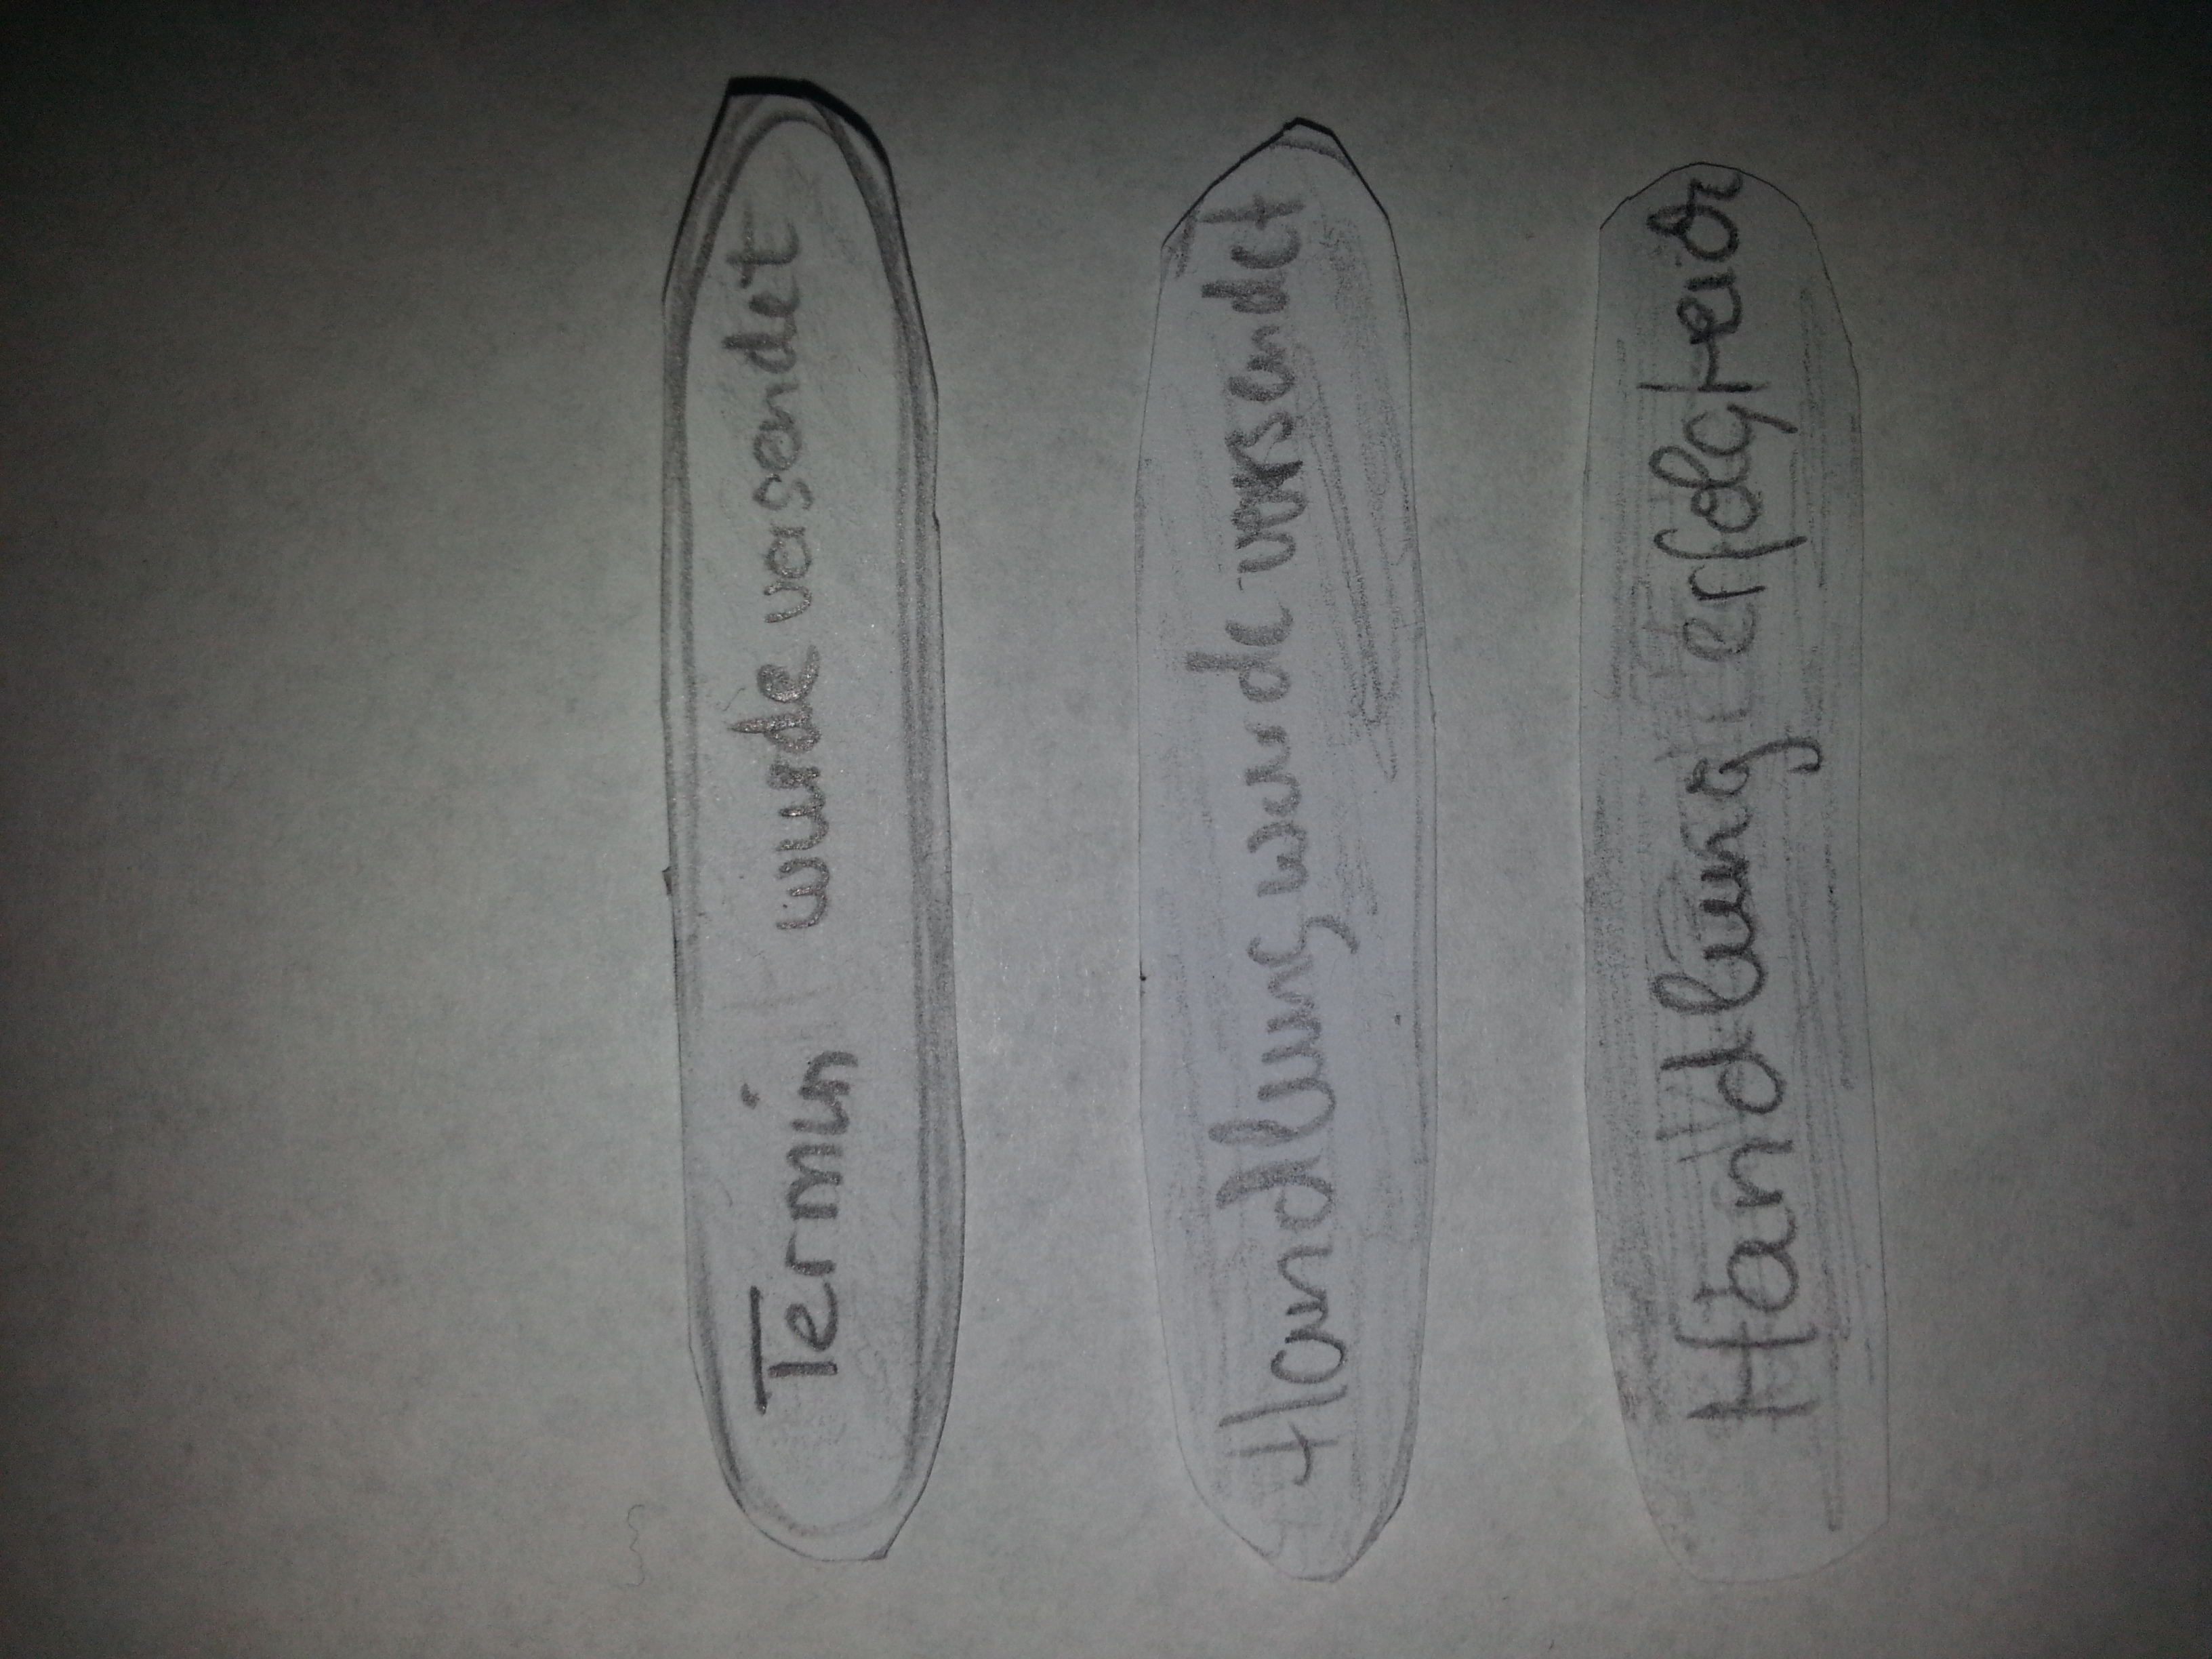 Termin wurde versendet
Handlung wurde versendet
Handlung erfolgreich